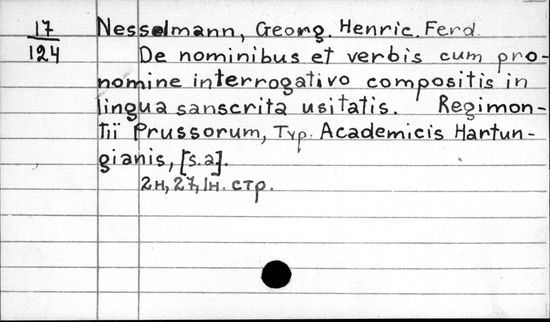 17 Nesselmann, Georg. Henric. Ferd.
124 De nominibus et verbis cum pro-
nomine interrogativo compositis in
lingua sanscrita usitatis. Regimon-
tii Prussorum, Typ. Academicis Hartun-
gianis, [s.a].
2н, 27, 1н. стр.